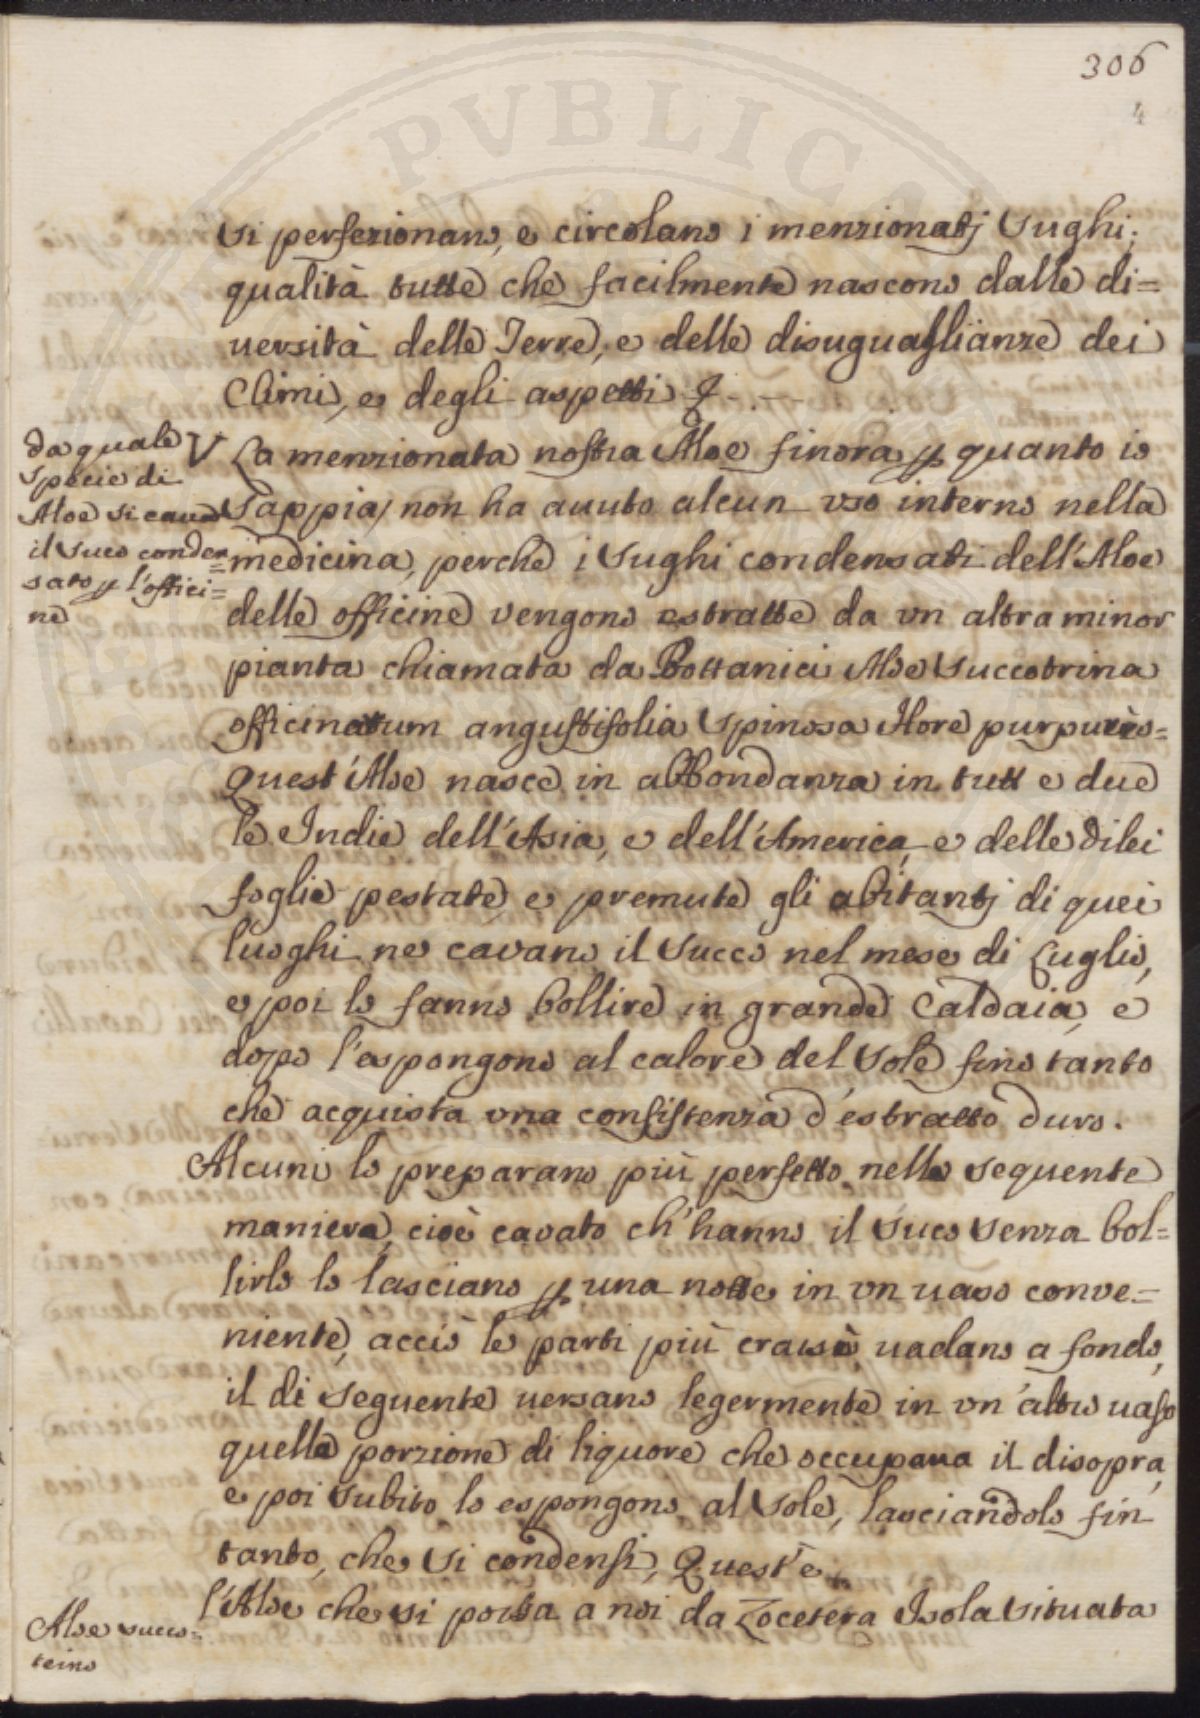 306
4
si perfezionano, e circolano i menzionatj sughi;
qualità tutte che facilmente nascono dalle di=
uersità delle Terre, e delle disuguaglianze dei
Climi, e degli aspetti
La menzionata nostra Aloe finora p quanto io
sappia, non ha auuto alcun vso interno nella
medicina, perche i sughi condensati dell'Aloe
delle officine vengono estratte da vn altra minor
pianta chiamata da Bottanici Aloe succotrina
officinarum angustifolia spinosa flore purpureo=
Quest'Aloe nasce in abbondanza in tutt e due
le Indie dell'Asia, e dell'America, e delle di lei
foglie pestate, e premute gli abitantj di quei
luoghi ne cavano il succo nel mese di Luglio,
e poi lo fanno bollire in grande Caldaia, e
dopo l'espongono al calore del Sole fino tanto
che acquista vna consistenza d'estratto duro.
Alcuni lo preparano più perfetto nella sequente
maniera, cioè cavato ch'hanno il suco senza bol=
lirlo lo lasciano p una notte in vn uaso conve=
niente, acciò le parti più crasse uadano a fondo,
il di seguente uersano legermente in vn'altro uaso
quella porzione di liquore che occupaua il disopra,
e poi subito lo espongono al Sole, lasciandolo fin
tanto, che si condensi; Quest'è
l'Aloe che si porta a noi da Zocetera Isola situata
da quale
specie di
Aloe si caua
il suco conden=
sato p l'offici=
ne
Aloe succo=
trino